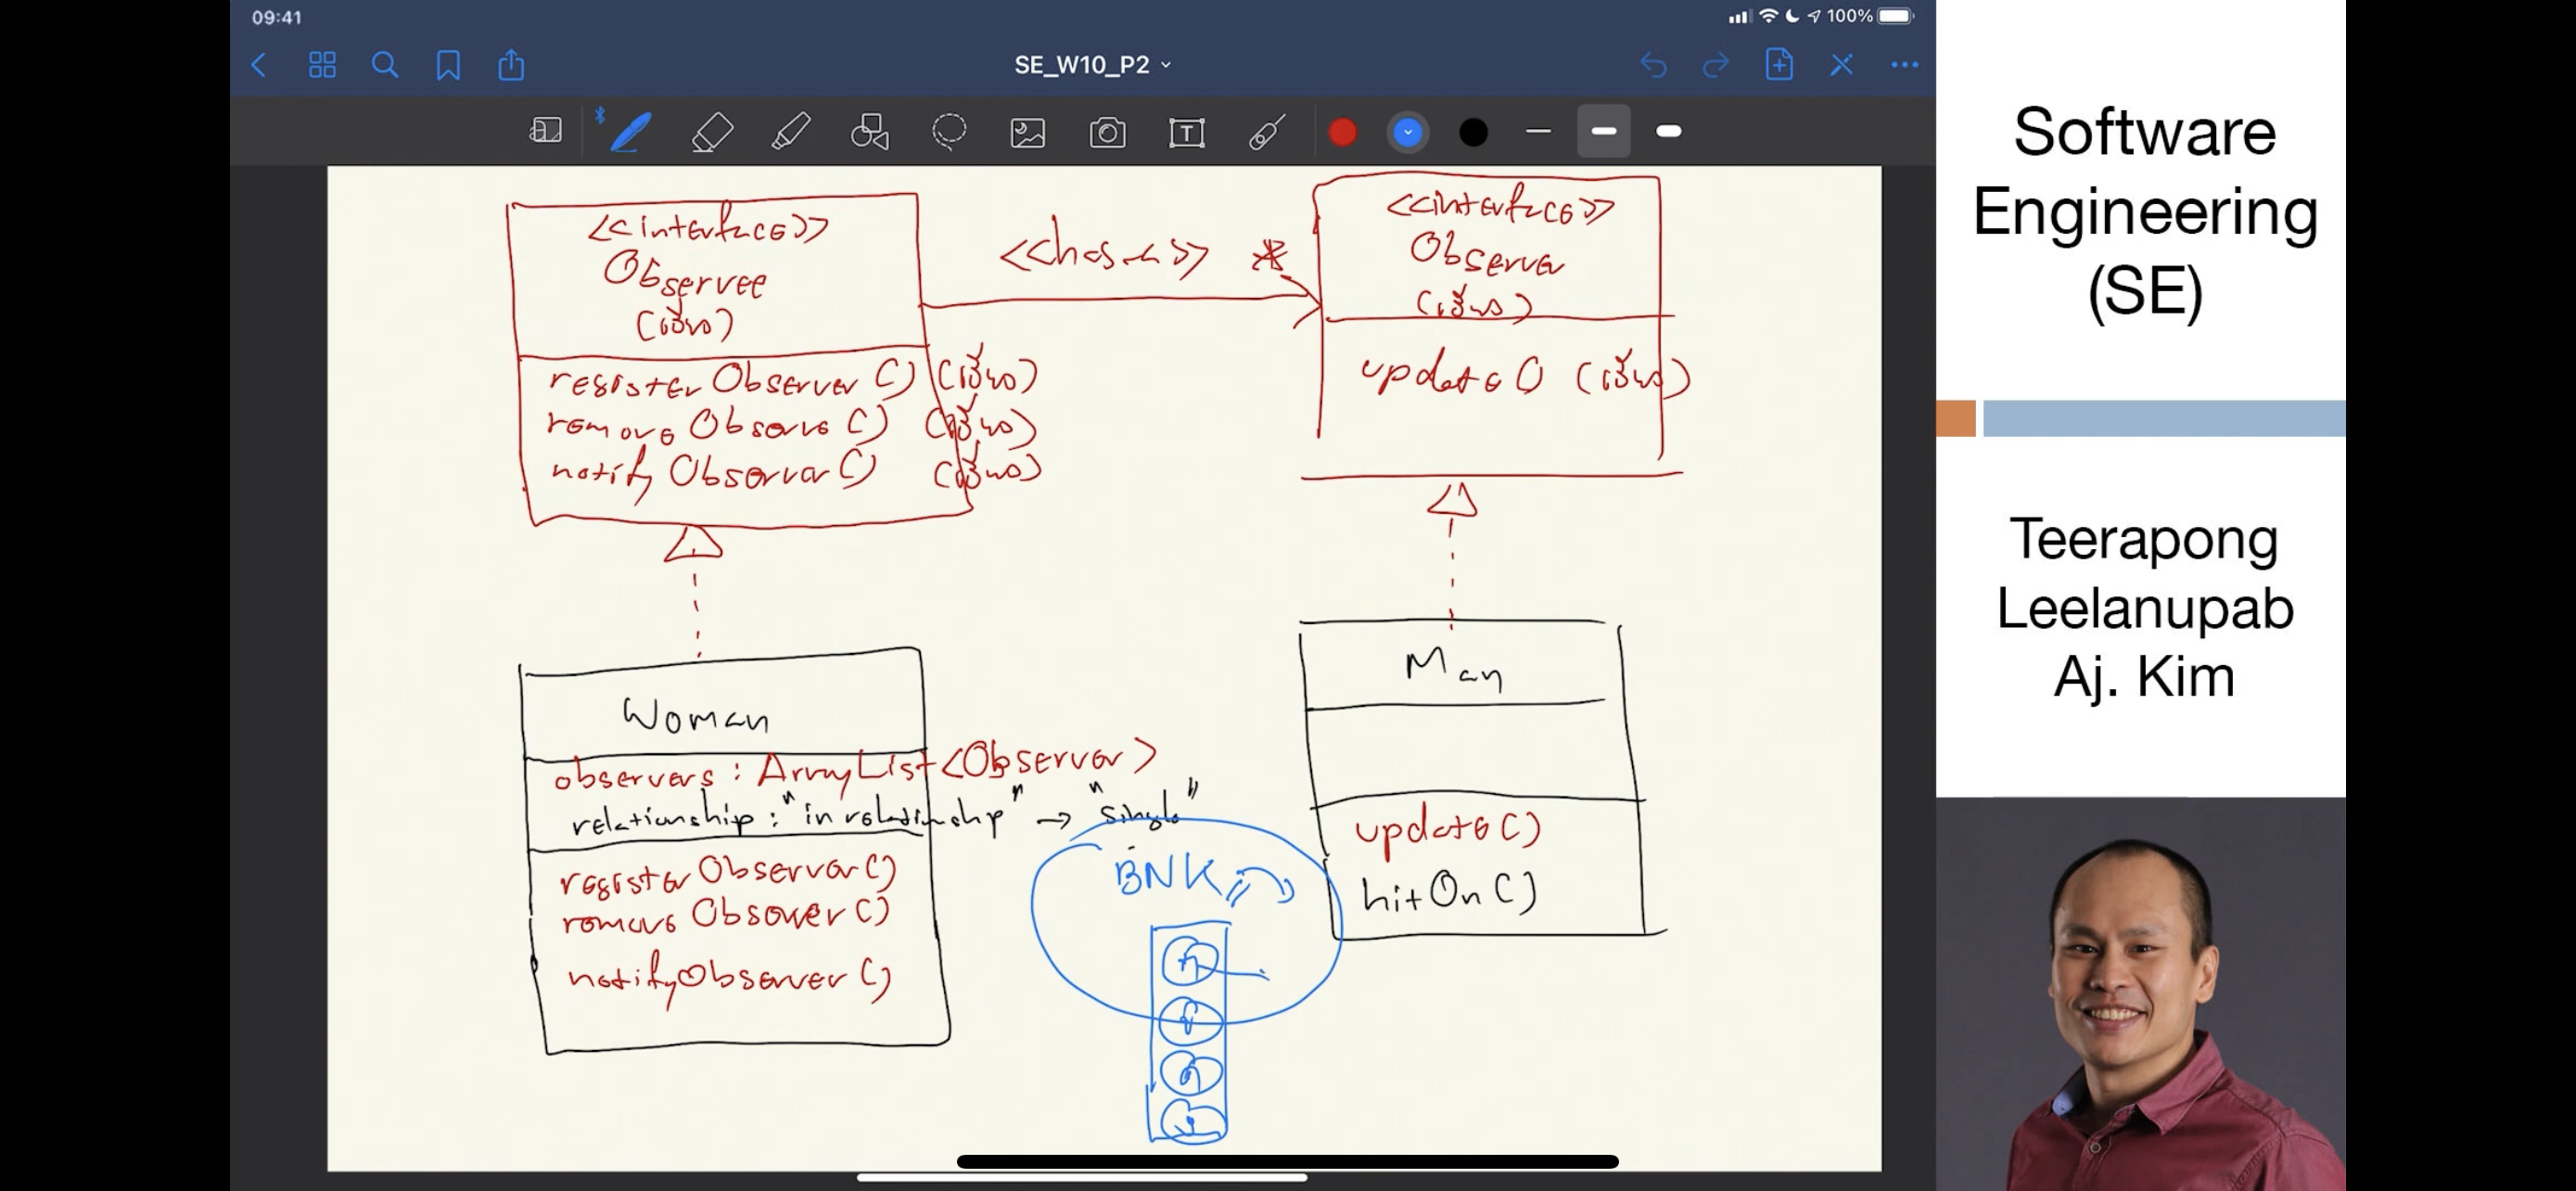 09:41
100%
SE_W10_P2
<<interface>>
Observee
(เอียง)
registerObserver() (เอียง)
removeObserve() (เอียง)
notifyObserver() (เอียง)
<<has-a>> *
<<interface>>
Observer
(เอียง)
update() (เอียง)
Woman
observers : ArrayList<Observer>
relationship : "in relationship" → "single"
registerObserver()
removeObserver()
notifyObserver()
Man
update()
hitOn()
BNK
Software
Engineering
(SE)
Teerapong
Leelanupab
Aj. Kim